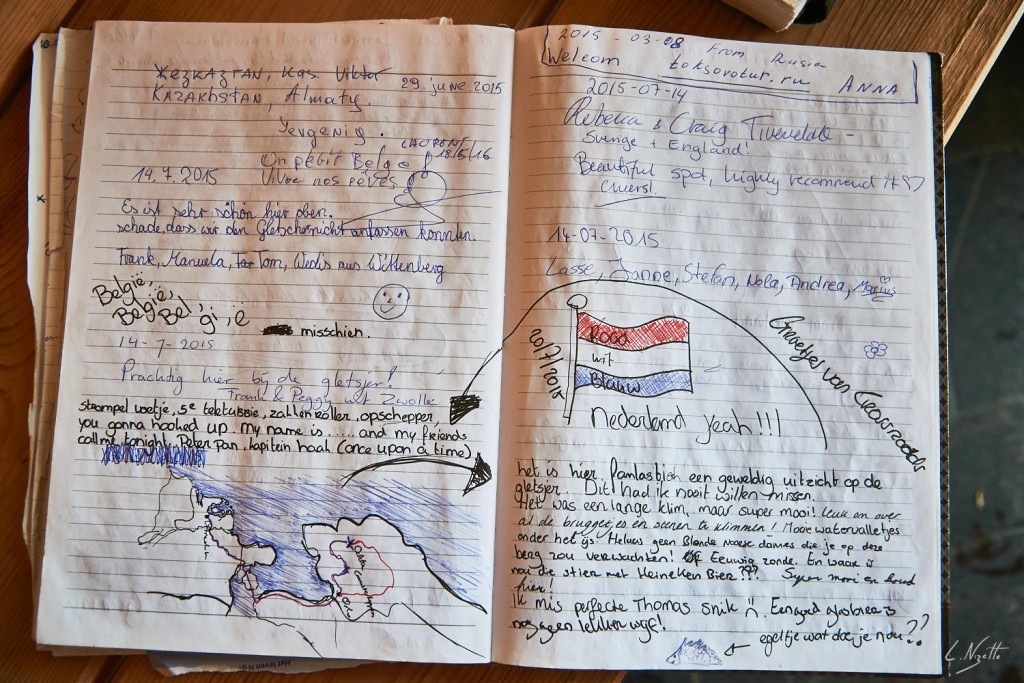 ЖЕЗКАЗГАН, Kas. Viktor
29. june. 2015
KAZAKHSTAN, Almaty.
Yevgeniy.
LAURENT
18/5/16
Un petit Belge
14.7.2015
Vivre nos rêves
Es ist sehr schön hier oben.
schade, dass wir den Gletscher nicht anfassen konnten.
Frank, Manuela, Tom, aus Wittenberg
België,
België,
Bel, gi, ë
misschien.
14-7-2015
Prachtig hier bij de gletsjer!
Frank & Peggy uit Zwolle
strompel voetje, 5e teletubbie, zakkenroller, opschepper,
you gonna hooked up. my name is ..... and my friends
call me tonight, Peter Pan, kapitein haak (once upon a time)
2015-03-08 From Rusia
Welcom toksovotur.ru ANNA
2015-07-14
Rebecka & Craig
Sverige + England!
Beautiful spot, highly recommend it
Cheers!
14-07-2015
Lasse, Janne, Stefan, Nola, Andrea, Marius
20/7/2015
Rood
wit
Blauw
Groetjes van Crossroads
Nederland yeah!!!
het is hier fantastisch een geweldig uitzicht op de
gletsjer. Dit had ik nooit willen missen.
Het was een lange klim, maar super mooi! Leuk om over
al de bruggetjes en stenen te klimmen! Mooie watervalletjes
onder het ijs. Helaas geen Blonde Noorse dames die je op deze
berg zou verwachten! Eeuwig zonde. En waar is
nou de stier met Heineken Bier??? Super mooi en koud
hier!
Ik mis perfecte Thomas snik
nog een lekker wijf!
egeltje wat doe je nou??
L. Nizette